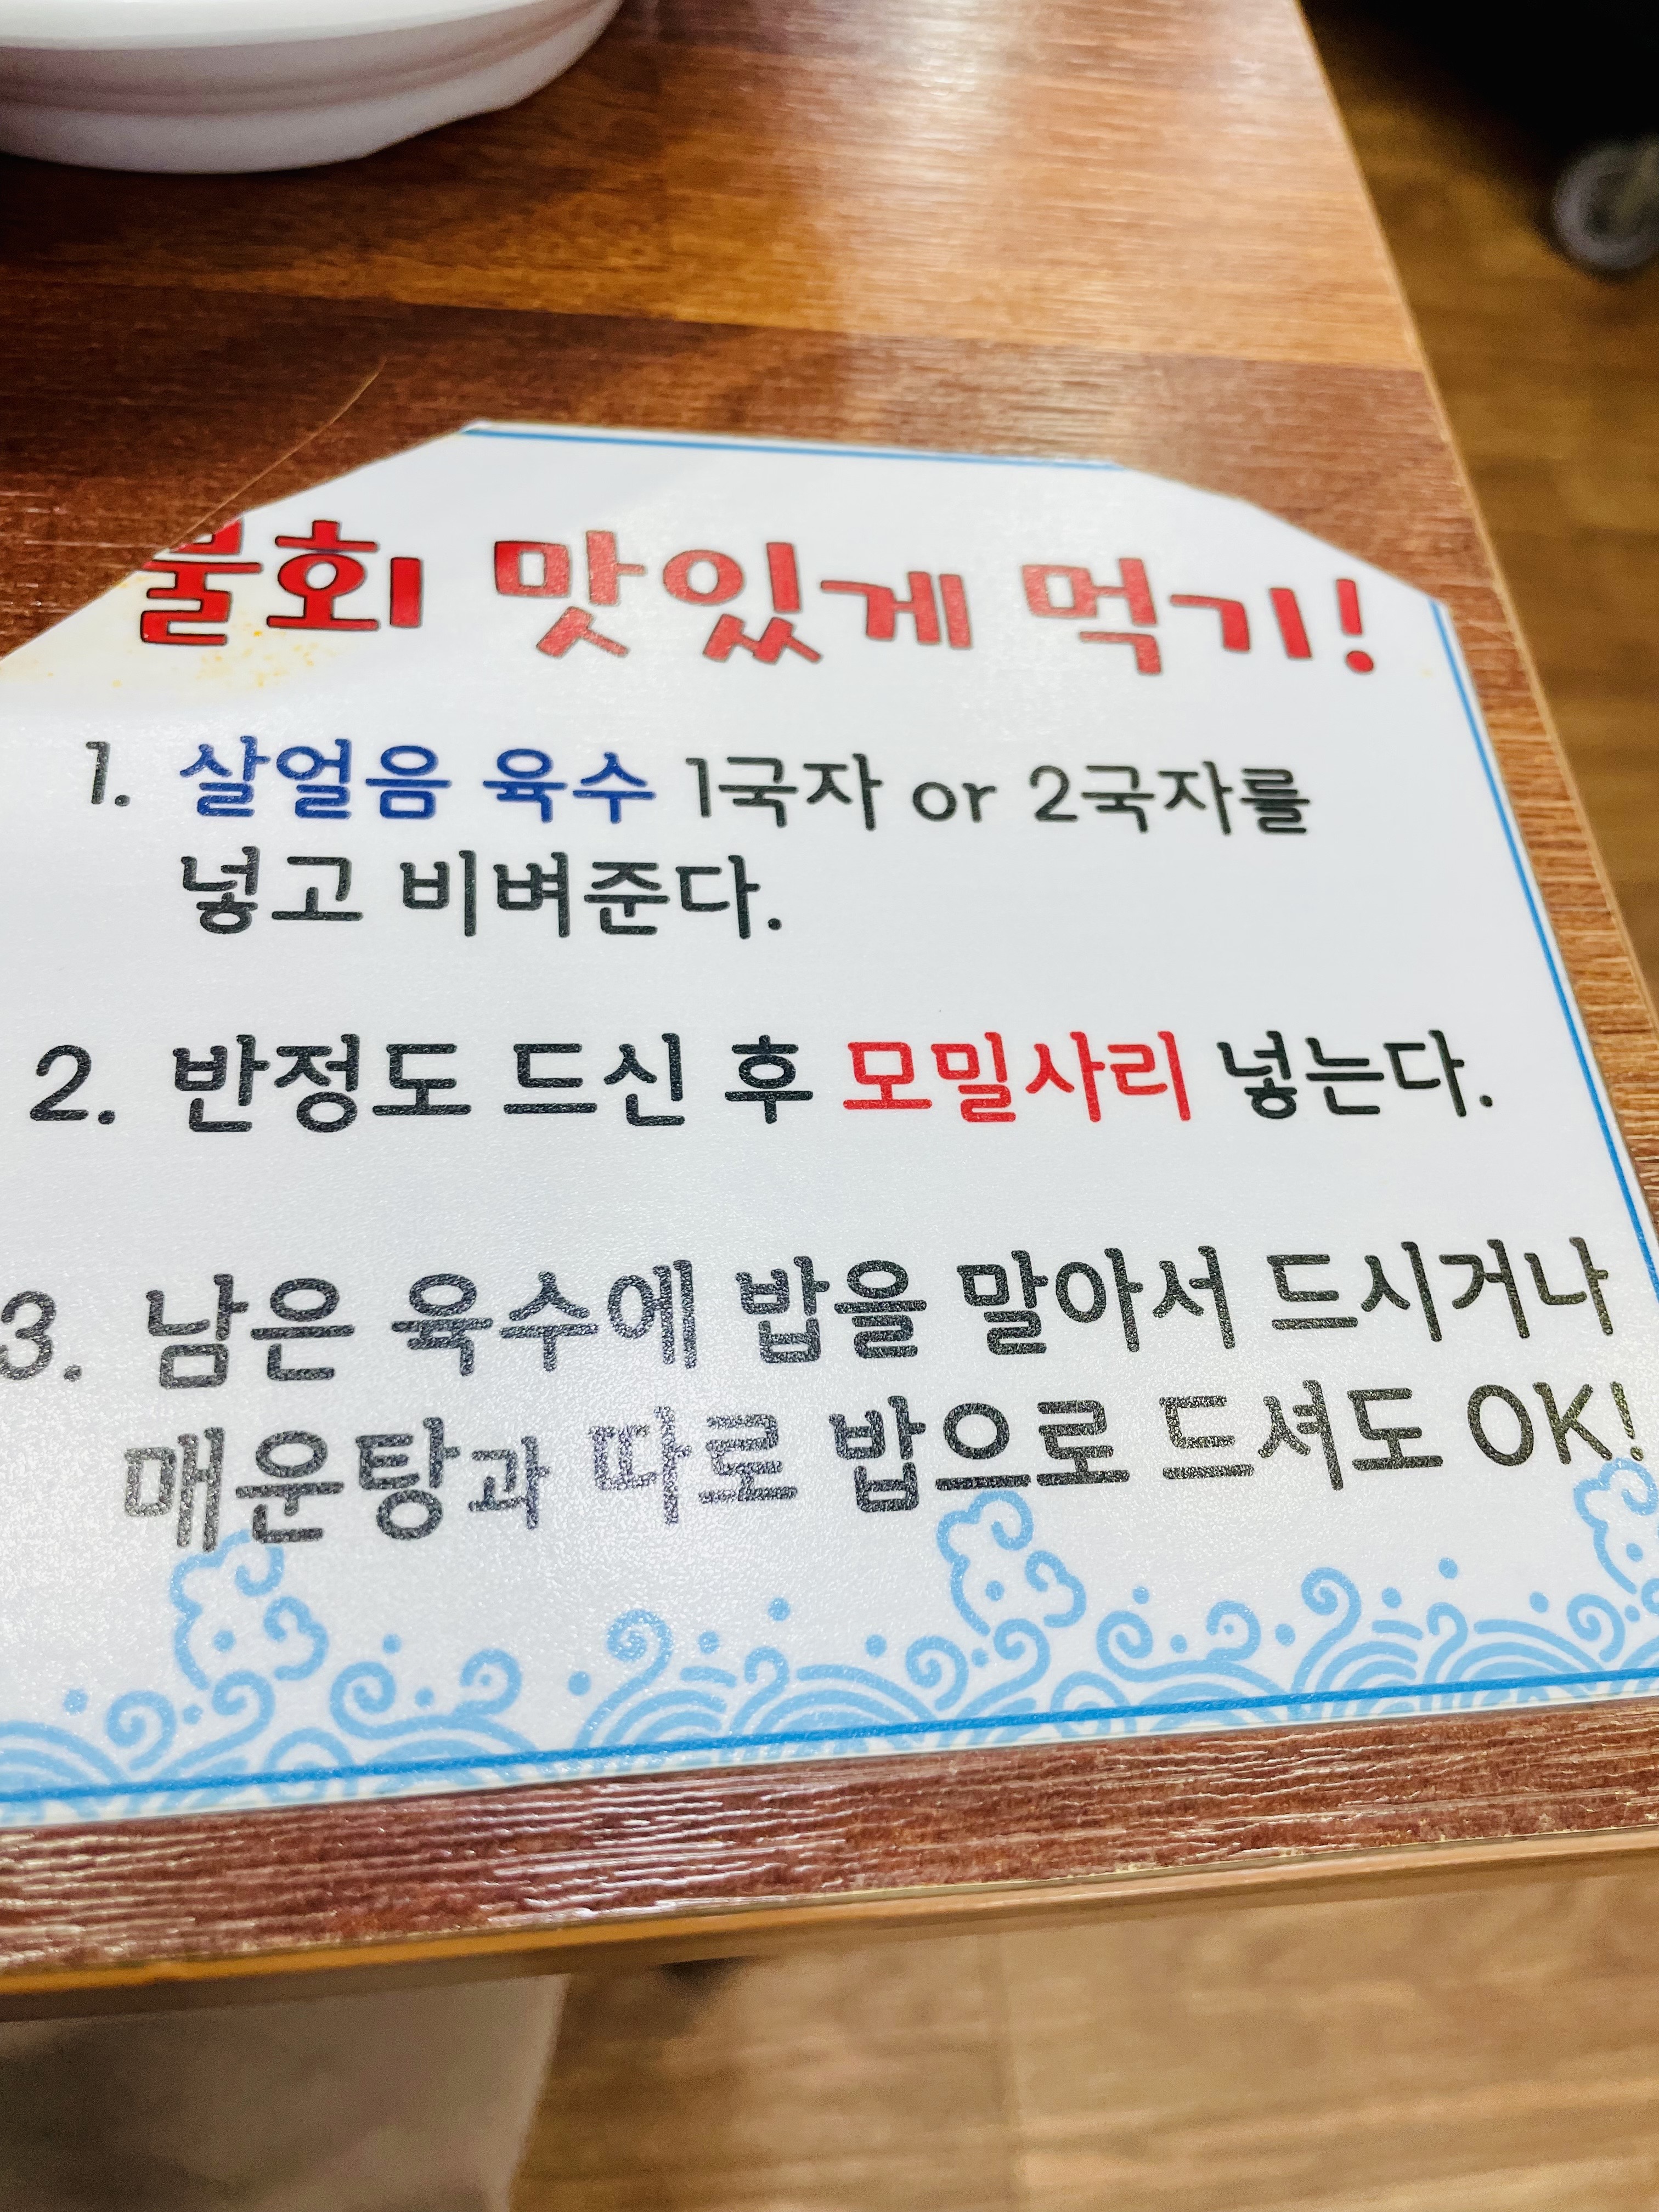 회 맛있게 먹기!
1. 살얼음 육수 1국자 or 2국자를
넣고 비벼준다.
2. 반정도 드신 후 모밀사리 넣는다.
3. 남은 육수에 밥을 말아서 드시거나
매운탕과 따로 밥으로 드셔도 OK!